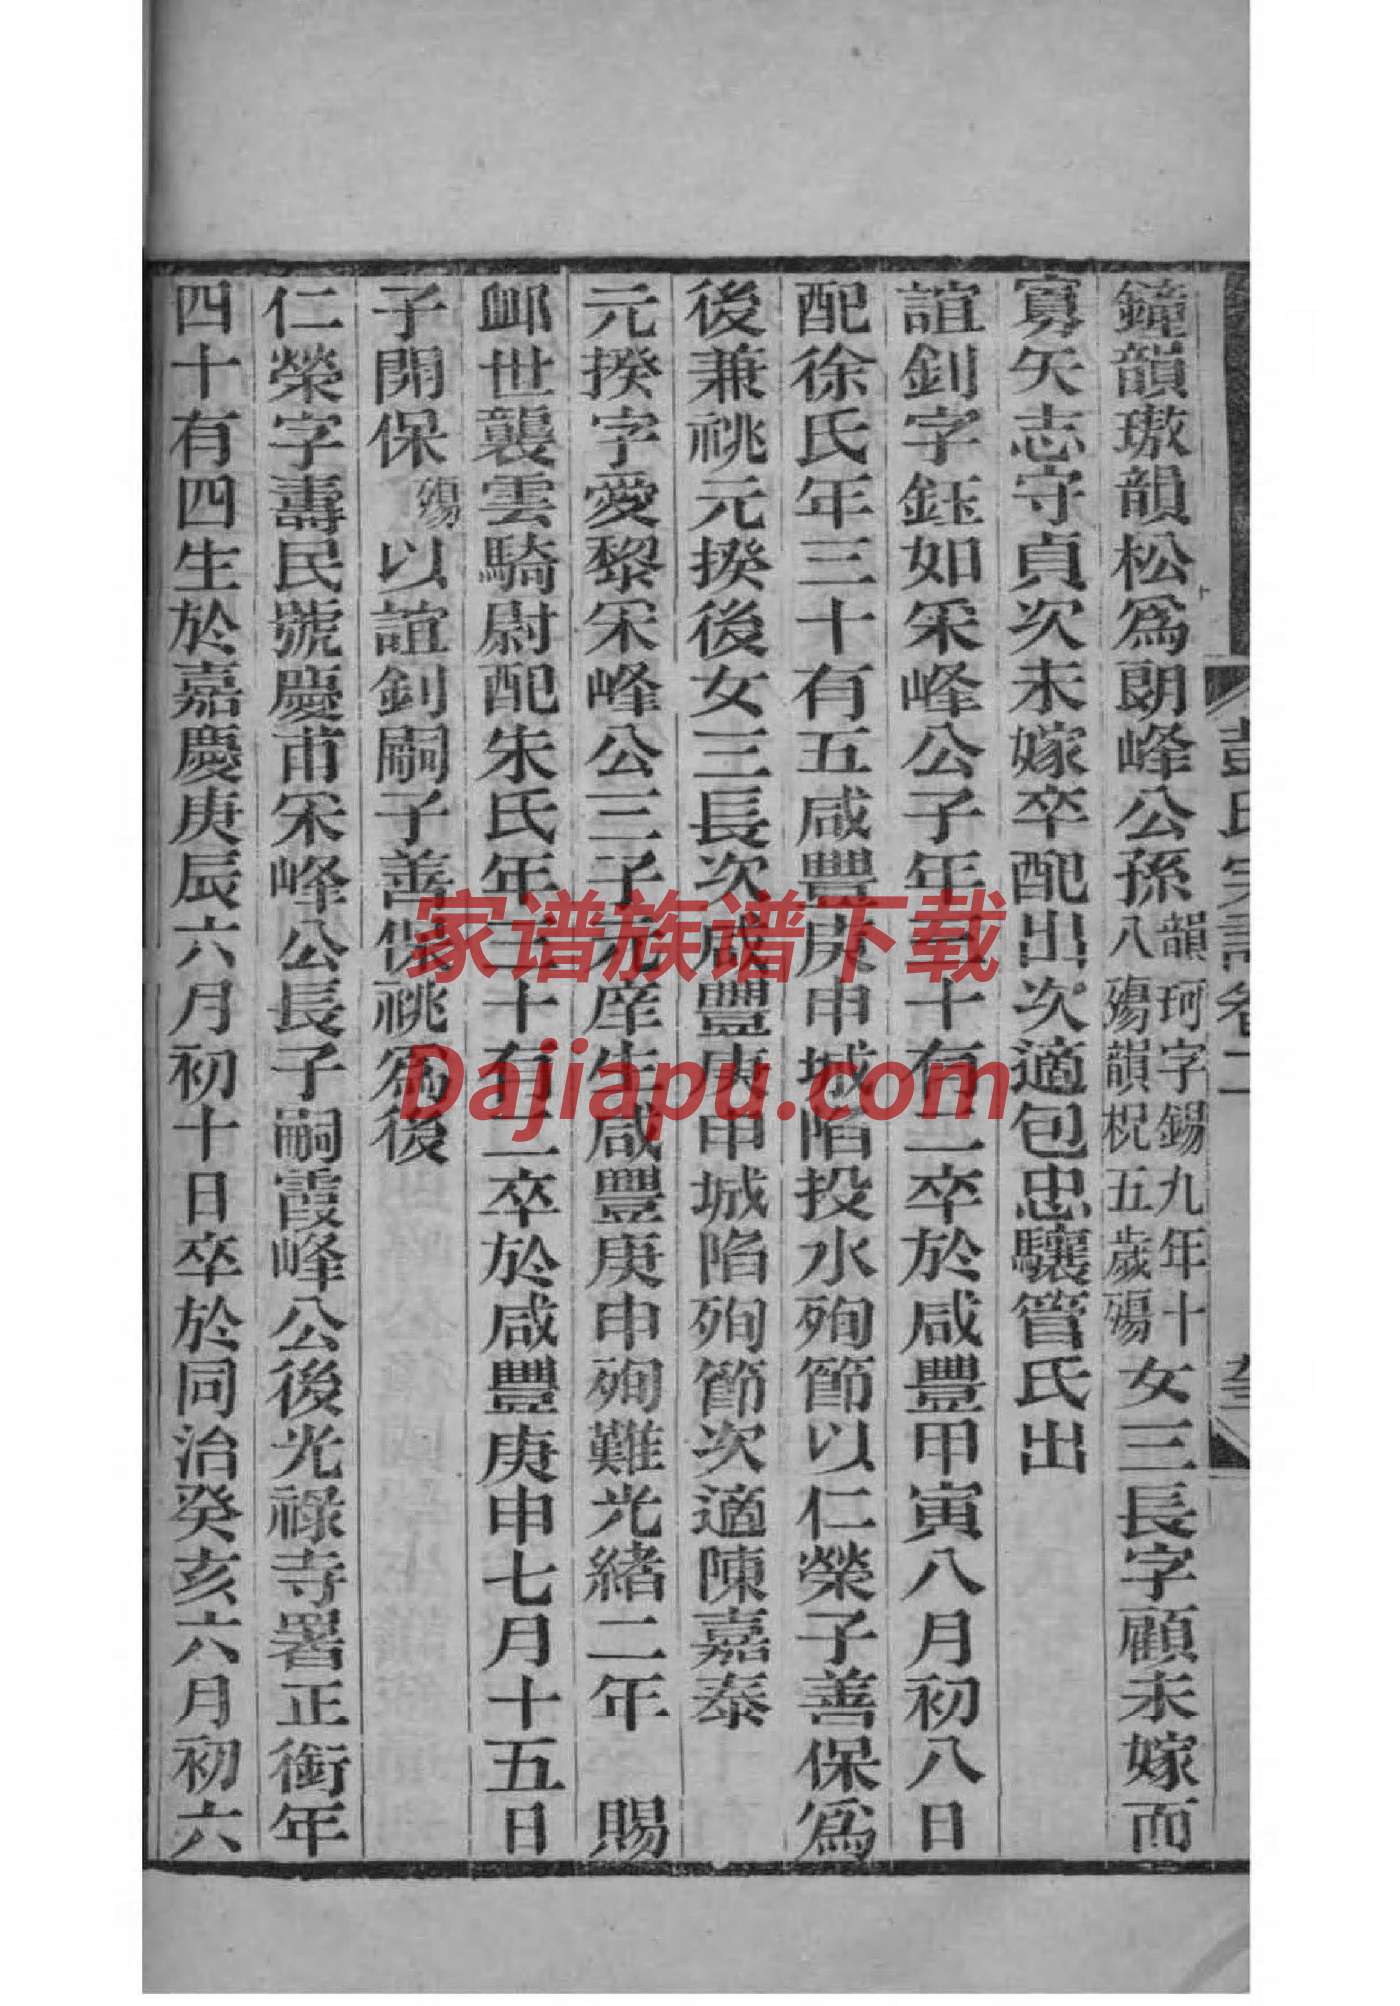 鐘韻璈韻松爲朗峰公孫韻珂字錫九年十八殤韻柷五歲殤女三長字顧未嫁而
寡矢志守貞次未嫁卒配出次適包忠驤管氏出
誼釗字鈺如寀峰公子年四十有二卒於咸豐甲寅八月初八日
配徐氏年三十有五咸豐庚申城陷投水殉節以仁榮子善保爲
後兼祧元揆後女三長次咸豐庚申城陷殉節次適陳嘉泰
元揆字愛黎宋峰公三子元庠生咸豐庚申殉難光緒二年 賜
卹世襲雲騎尉配朱氏年三十有二卒於咸豐庚申七月十五日
子開保殤以誼釗嗣子善保祧爲後
仁榮字壽民號慶甫宋峰公長子嗣霞峰公後光祿寺署正銜年
四十有四生於嘉慶庚辰六月初十日卒於同治癸亥六月初六
彭氏宗譜卷二
家谱族谱下载
Dajiapu.com